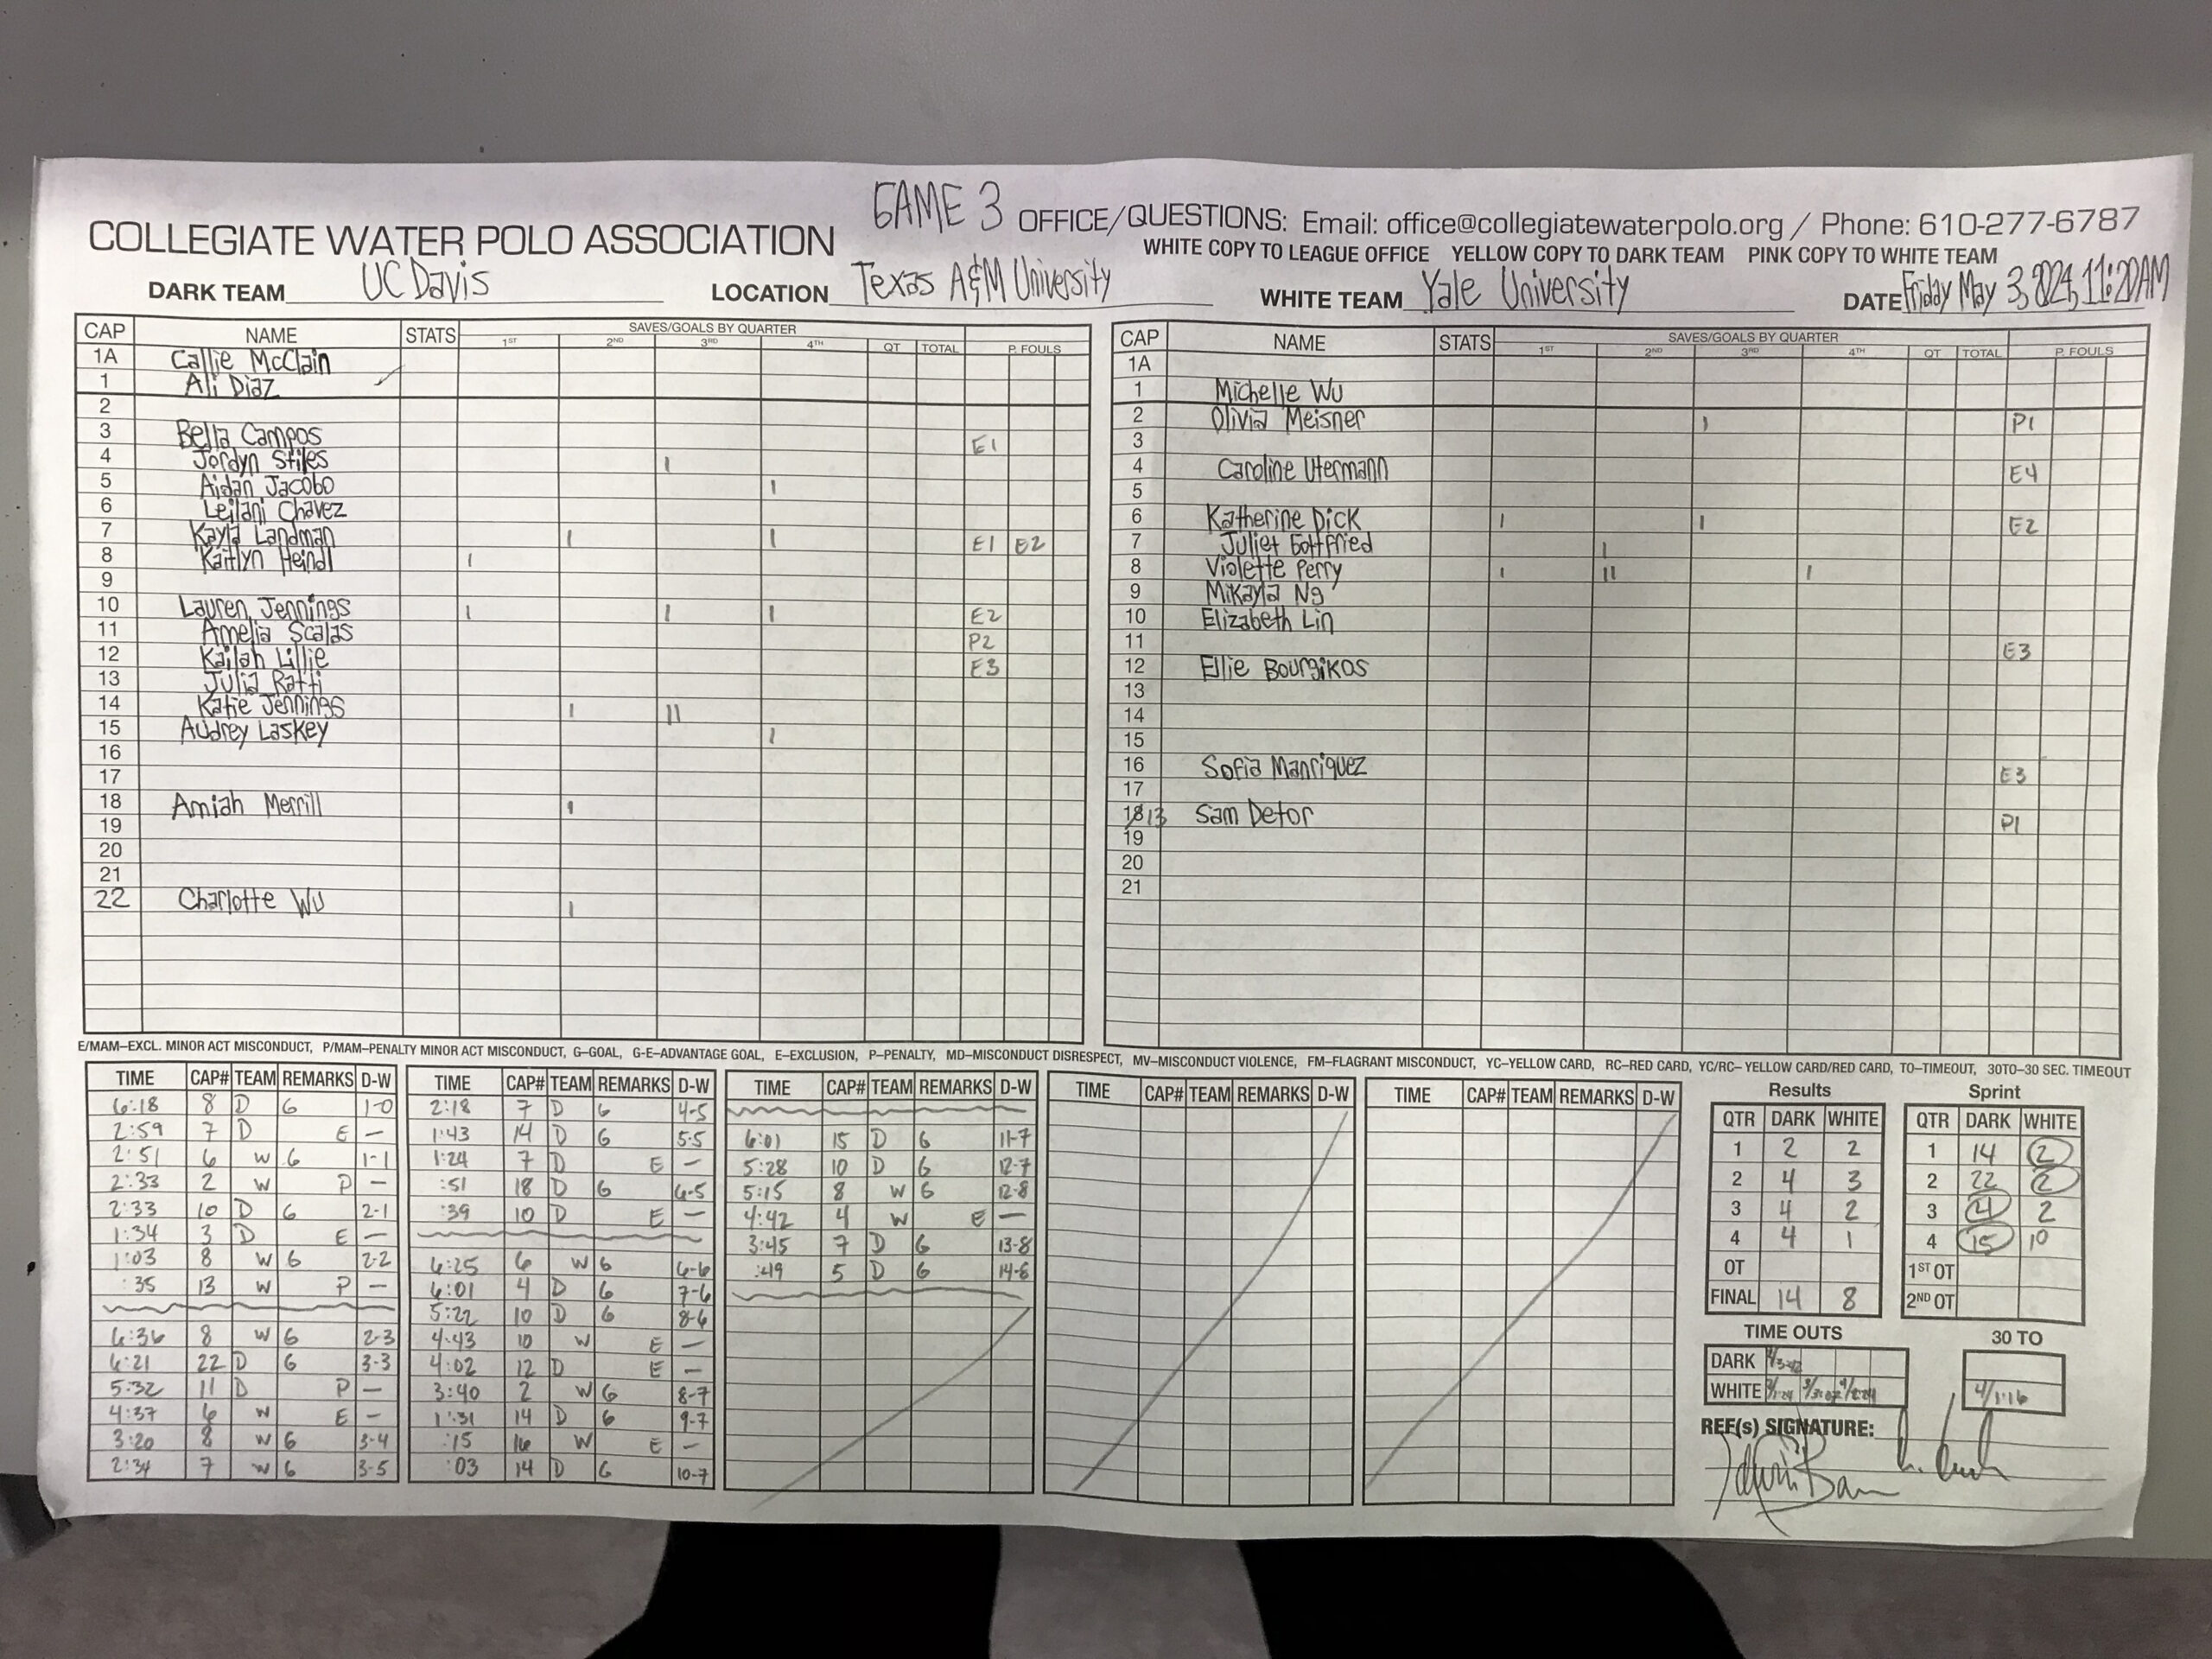 GAME 3
COLLEGIATE WATER POLO ASSOCIATION OFFICE/QUESTIONS: Email: office@collegiatewaterpolo.org / Phone: 610-277-6787
WHITE COPY TO LEAGUE OFFICE YELLOW COPY TO DARK TEAM PINK COPY TO WHITE TEAM
DARK TEAM UC Davis LOCATION Texas A&M University WHITE TEAM Yale University DATE Friday May 3, 2024, 11:20AM
CAP NAME STATS SAVES/GOALS BY QUARTER
1ST 2ND 3RD 4TH QT TOTAL P. FOULS
1A Callie McClain
1 Ali Diaz
2
3 Bella Campos E1
4 Jordyn Stiles I
5 Aidan Jacobo I
6 Leilani Chavez
7 Kayla Landman I I E1 E2
8 Kaitlyn Heindl I
9
10 Lauren Jennings I I I E2
11 Amelia Scalas P2
12 Kailah Lillie E3
13 Julia Ratti
14 Katie Jennings I II
15 Audrey Laskey I
16
17
18 Amiah Merrill I
19
20
21
22 Charlotte Wu I
CAP NAME STATS SAVES/GOALS BY QUARTER
1ST 2ND 3RD 4TH QT TOTAL P. FOULS
1A
1 Michelle Wu
2 Olivia Meisner I P1
3
4 Caroline Utermann E4
5
6 Katherine Dick I I E2
7 Juliet Gottfried I
8 Violette Perry I II I
9 Mikayla Ng
10 Elizabeth Lin
11 E3
12 Ellie Bourgikos
13
14
15
16 Sofia Manriquez E3
17
18 13 Sam Detor P1
19
20
21
E/MAM–EXCL. MINOR ACT MISCONDUCT, P/MAM–PENALTY MINOR ACT MISCONDUCT, G–GOAL, G-E–ADVANTAGE GOAL, E–EXCLUSION, P–PENALTY, MD–MISCONDUCT DISRESPECT, MV–MISCONDUCT VIOLENCE, FM–FLAGRANT MISCONDUCT, YC–YELLOW CARD, RC–RED CARD, YC/RC– YELLOW CARD/RED CARD, TO–TIMEOUT, 30TO–30 SEC. TIMEOUT
TIME CAP# TEAM REMARKS D-W
6:18 8 D G 1-0
2:59 7 D E —
2:51 6 W G 1-1
2:33 2 W P —
2:33 10 D G 2-1
1:34 3 D E —
1:03 8 W G 2-2
:35 13 W P —
6:36 8 W G 2-3
6:21 22 D G 3-3
5:32 11 D P —
4:37 6 W E —
3:20 8 W G 3-4
2:34 7 W G 3-5
TIME CAP# TEAM REMARKS D-W
2:18 7 D G 4-5
1:43 14 D G 5-5
1:24 7 D E —
:51 18 D G 6-5
:39 10 D E —
6:25 6 W G 6-6
6:01 4 D G 7-6
5:22 10 D G 8-6
4:43 10 W E —
4:02 12 D E —
3:40 2 W G 8-7
1:31 14 D G 9-7
:15 16 W E —
:03 14 D G 10-7
TIME CAP# TEAM REMARKS D-W
6:01 15 D G 11-7
5:28 10 D G 12-7
5:15 8 W G 12-8
4:42 4 W E —
3:45 7 D G 13-8
:49 5 D G 14-8
TIME CAP# TEAM REMARKS D-W
TIME CAP# TEAM REMARKS D-W
Results
QTR DARK WHITE
1 2 2
2 4 3
3 4 2
4 4 1
OT
FINAL 14 8
Sprint
QTR DARK WHITE
1 14 2
2 22 2
3 4 2
4 15 10
1ST OT
2ND OT
TIME OUTS
DARK
WHITE
30 TO
4/1:16
REF(s) SIGNATURE: